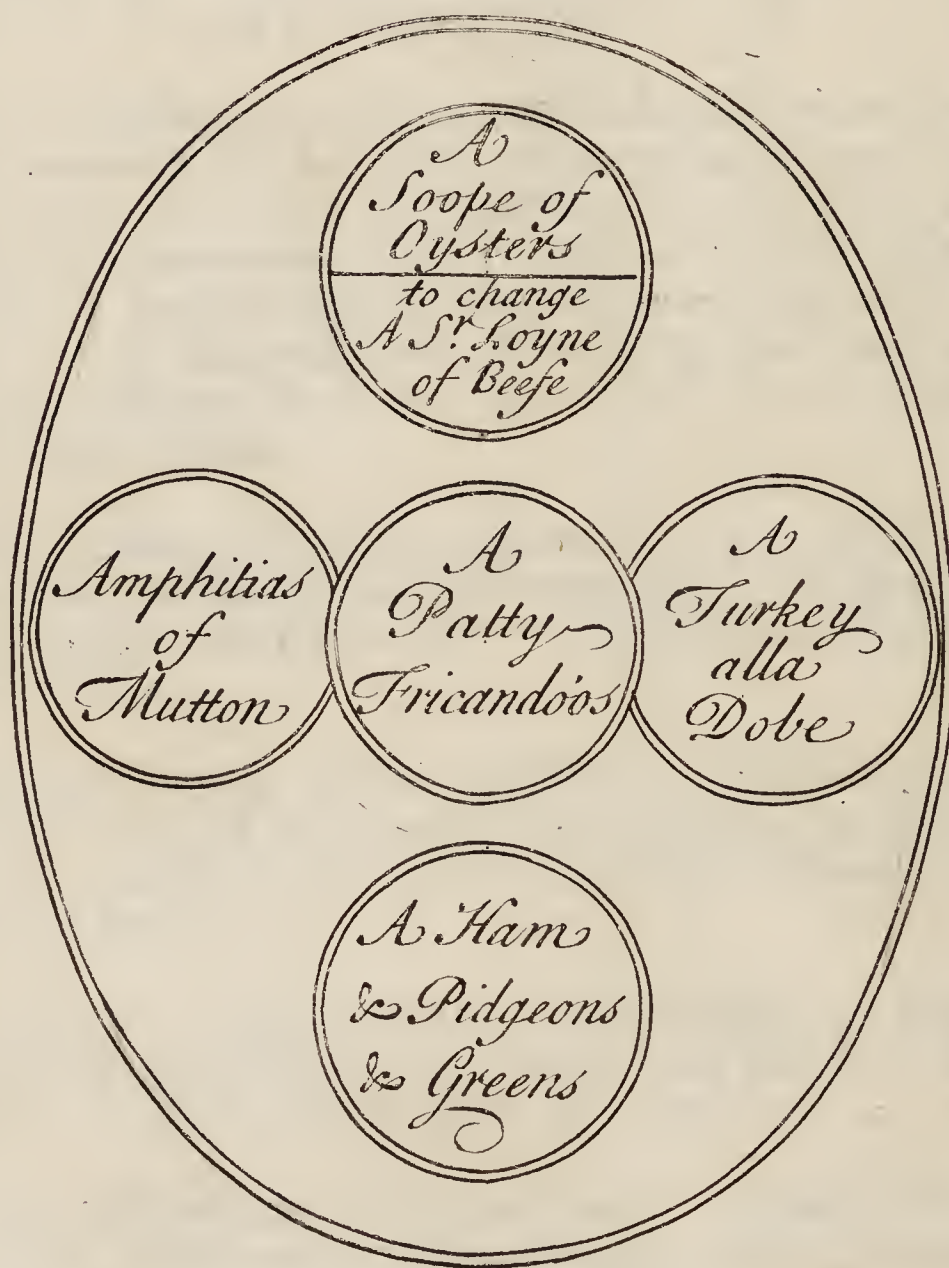 A
Soope of
Oysters
to change
A Sr. Loyne
of Beefe
Amphitias
of
Mutton
A
Patty
Fricandóos
A
Turkey
alla
Dobe
A Ham
& Pidgeons
& Greens